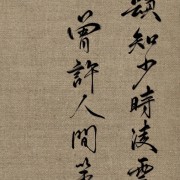 須知少時凌雲
曾許人間第